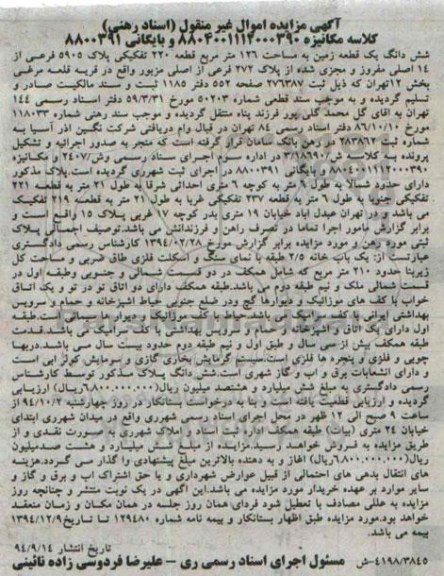 آگهی مزایده اموال غیر منقول (اسناد رهنی)
کلاسه مکانیزه ۸۸۰۴۰۰۱۱۱۴۰۰۰۳۹۰ و بایگانی ۸۸۰۰۳۹۱
شش دانگ یک قطعه زمین به مساحت ۱۲۶ متر مربع قطعه ۲۲۰ تفکیکی پلاک ۵۹۰۵ فرعی از
۱۴ اصلی مفروز و مجزی شده از پلاک ۲۷۲ فرعی از اصلی مزبور واقع در قریه قلعه مرغی
بخش ۱۲تهران که ذیل ثبت ۲۷۶۳۸۷ صفحه ۵۵۲ دفتر ۱۱۸۵ ثبت و سند مالکیت صادر و
تسلیم گردیده و به موجب سند قطعی شماره ۵۰۲۰۳ مورخ ۵۹/۳/۳۱ دفتر اسناد رسمی ۱۴۴
تهران به آقای گل محمد گلی پور فرزند پناه منتقل گردیده و موجب سند رهنی شماره ۱۱۸۰۳۳
مورخ ۸۶/۱۰/۱۰ دفتر اسناد رسمی ۸۴ تهران در قبال وام دریافتی شرکت نگین آذر آسیا به
شماره ثبت ۲۸۳۸۶۲ در رهن بانک سامان قرار گرفته است که منجر به صدور اجرائیه و تشکیل
پرونده به کلاسه ۳/۱۹۸۶۹۰ در اداره سوم اجرای اسناد رسمی وش/۲۴۰۷ و مکانیزه
۸۸۰۴۰۰۱۱۱۴۰۰۰۳۹۰ و بایگانی ۸۸۰۰۳۹۱ در اجرای ثبت شهرری گردیده است.پلاک مذکور
دارای حدود شمالا به طول ۶ متر به کوچه ۶ متری احداثی شرقا به طول ۲۱ متر به قطعه ۲۲۱
تفکیکی جنوبا به طول ۶ متر به قطعه ۲۳۷ تفکیکی غربا به طول ۲۱ متر به قطعه ۲۱۹ تفکیک
می باشد و در تهران عبدل آباد خیابان ۱۹ متری بدر کوچه ۷ غربی پلاک ۱۵ واقع است و
برابر گزارش مامور اجرا تماما در تصرف راهن و فرزندانش می باشد.توصیف اجمالی پلاک
ثبتی مورد رهن و مورد مزایده برابر گزارش مورخ ۱۳۹۴/۰۲/۲۸ کارشناس رسمی دادگستری
عبارتست از: یک باب خانه ۲/۵ طبقه با نمای سنگ و اسکلت فلزی طاق ضربی و مساحت کل
زیربنا حدود ۲۱۰ متر مربع که شامل همکف در دو قسمت شمالی و جنوبی وطبقه اول در
قسمت شمالی ملک و نیم طبقه دوم می باشد.طبقه همکف دارای دو اتاق تو در تو و یک اتاق
خواب با کف های موزائیک و دیوارها گچ ودر ضلع جنوبی حیاط آشپزخانه و حمام و سرویس
بهداشتی ایرانی با کف سرامیک می باشد.حیاط با کف موزائیک و دیوار ها سیمانی است.طبقه
اول دارای یک اتاق و آشپزخانه و حمام و سرویس بهداشتی با کف سرامیک می باشد.قدمت
طبقه همکف بیش از سی سال و طبق اول و نیم طبقه دوم حدود بیست سال می باشد.دربها
چوبی و فلزی و پنجره ها فلزی است.سیستم گرمایش بخاری گازی و سرمایش کولر آبی است
و دارای انشعابات برق و آب و گاز شهری است.شش دانگ پلاک مذکور توسط کارشناس
رسمی دادگستری به مبلغ شش میلیارد و هشتصد میلیون ریال(۶،۸۰۰،۰۰۰،۰۰۰ریال) ارزیابی
گردیده و ارزیابی قطعیت یافته است و بنا به درخواست بستانکار در روز چهارشنبه ۹۴/۱۰/۲ از
ساعت ۹ صبح الی ۱۲ ظهر در محل اجرای اسناد رسمی شهرری واقع در میدان شهرری ابتدای
خیابان ۲۴ متری (بیات) طبقه همکف اداره ثبت اسناد و املاک شهرری به صورت نقدی و از
طریق مزایده به فروش خواهد رسید.مزایده از مبلغ شش میلیارد و هشت صدمیلیون
ریال(۶،۸۰۰،۰۰۰،۰۰۰ریال) آغاز و به دهنده بالاترین مبلغ پیشنهادی وا گذار می گردد.هزینه
های انتقال بدهی های احتمالی از قبیل عوارض شهرداری و یا حق اشتراک آب و برق و گاز و
سایر موارد بر عهده خریدار مورد مزایده می باشد.این آگهی در یک نوبت منتشر و چنانچه روز
مزایده به عللی مصادف با تعطیل شود فردای همان روز جلسه در همان مکان و زمان منعقد
خواهد بود.مورد مزایده طبق اظهار بستانکار و بیمه نامه شماره ۱۲۹۴۸۰ تا تاریخ۱۳۹۴/۱۲/۹
بیمه می باشد.
تاریخ انتشار ۹۴/۹/۱۴
۴۱۹۸/۳۸۴۵-ش مسئول اجرای اسناد رسمی ری - علیرضا فردوسی زاده نائینی